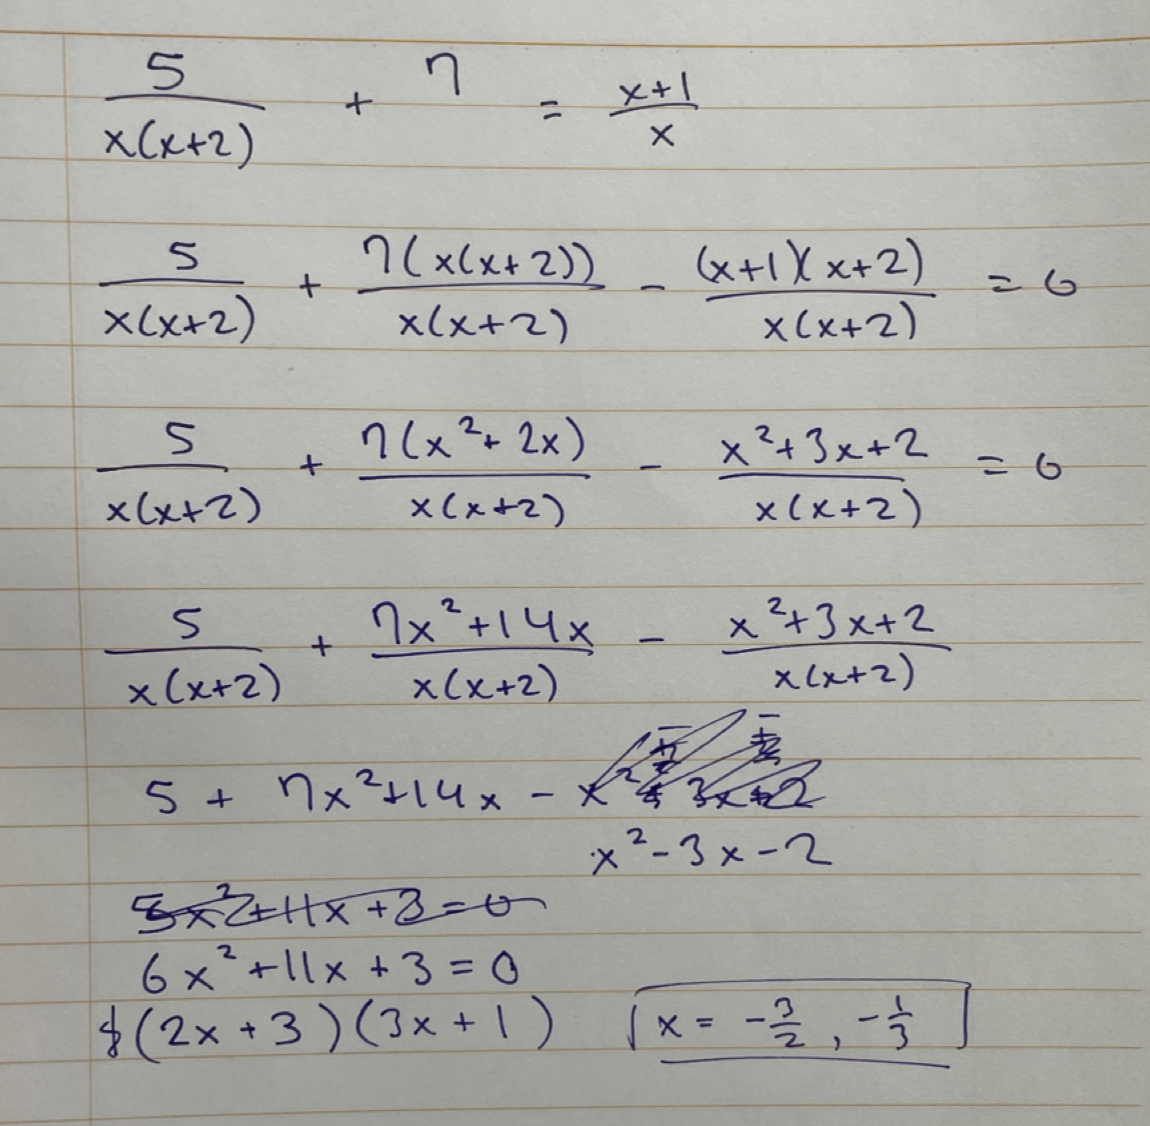 5/(x(x+2)) + 7 = (x+1)/x
5/(x(x+2)) + 7(x(x+2))/(x(x+2)) - (x+1)(x+2)/(x(x+2)) = 0
5/(x(x+2)) + 7(x²+2x)/(x(x+2)) - (x²+3x+2)/(x(x+2)) = 0
5/(x(x+2)) + (7x²+14x)/(x(x+2)) - (x²+3x+2)/(x(x+2))
5 + 7x²+14x -
x²-3x-2
5x²+11x+3=0
6x²+11x+3=0
(2x+3)(3x+1) x = -3/2, -1/3